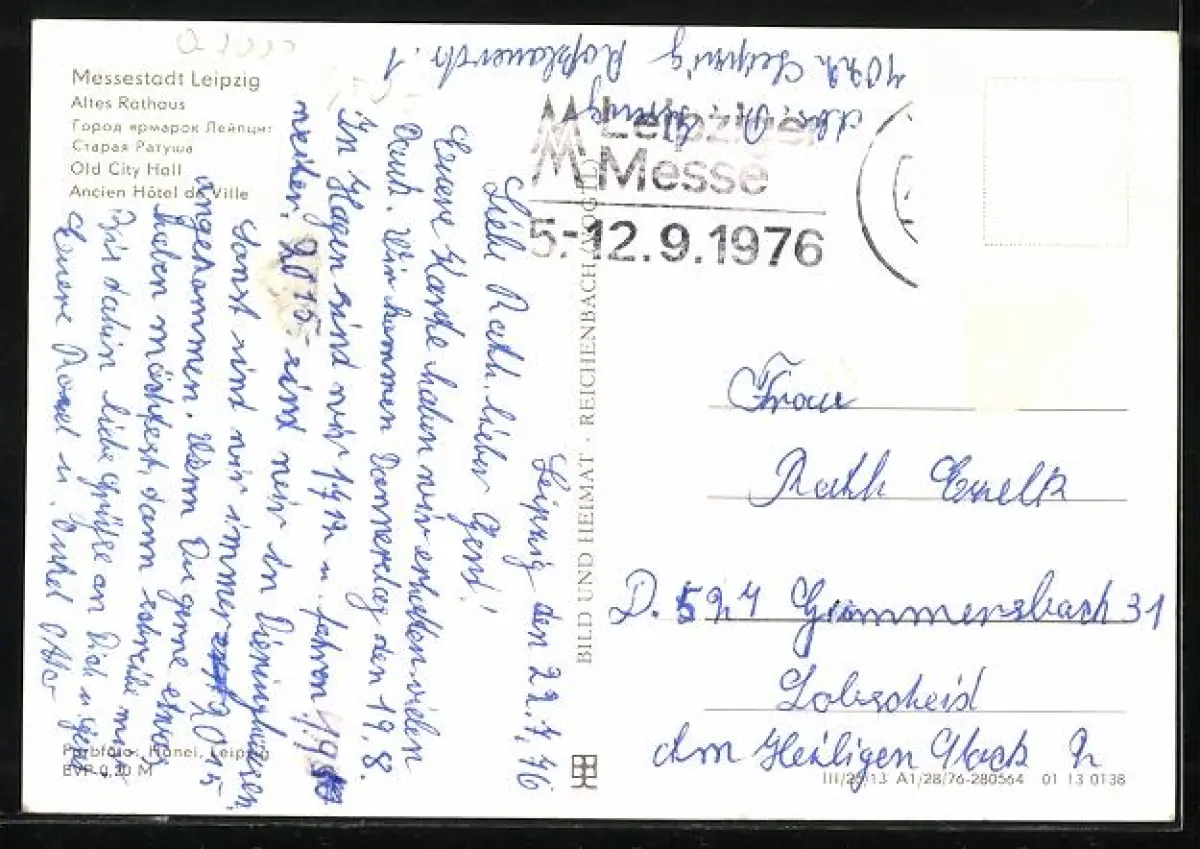 Messestadt Leipzig
Altes Rathaus
Город ярмарок Лейпциг
Старая Ратуша
Old City Hall
Ancien Hôtel de Ville
Leipzig den 22.7.76
Liebe Ruth, lieber Gerd!
Euere Karte haben wir erhalten vielen
Dank. Wir kommen Donnerstag den 19.8.
In Hagen sind wir u. fahren
weiter. 2015 sind wir in Dieringhausen
Sonst sind wir immer 2015
angekommen. Wenn Du gerne etwas
haben möchtest, dann schreibe mir
Bis dahin liebe Grüße an Dich u. Gerd
Euere u. Onkel Otto
Farbfoto: Hänel, Leipzig
EVP 0,20 M
BILD UND HEIMAT · REICHENBACH (VOGTL)
Abs.
Leipzig Roßlauerstr. 1
Leipziger
Messe
5.-12.9.1976
Frau
Ruth
D. 527 Gummersbach 31
Lobscheid
Am Heiligen Stock 2
III/25/13 A1/28/76-280564 01 13 0138